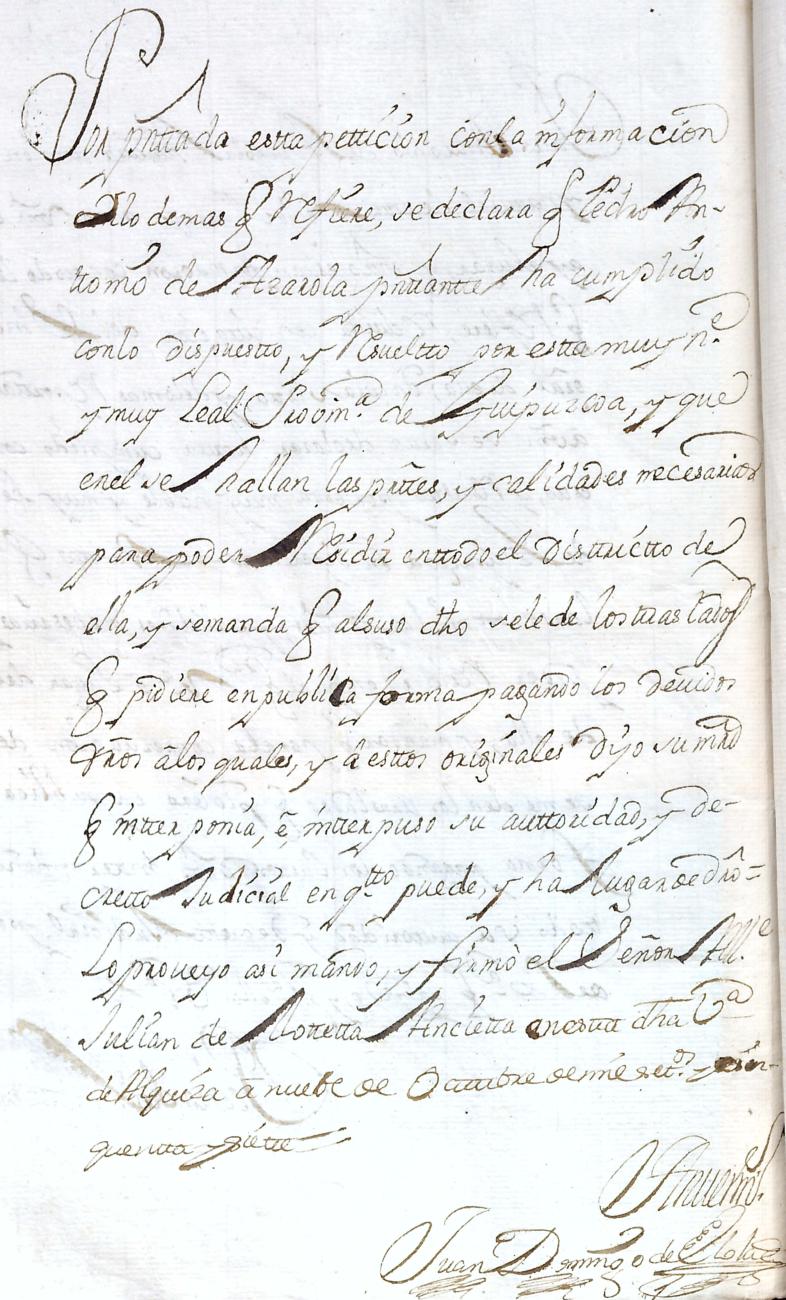 Por pnttada estta pettizion conla informazion
conlo demas q Refiere, se declara q Pedro An-
ttonio de Azarola pnttantte ha cumplido
conlo dispuestto, y Resueltto por estta muy n.e
y muy Leal Provin.a de Guipuzcoa, y que
enel se hallan las prttes, y calidades necesarias
para poder Residir enttodo el Disttrictto de
ella, y semanda q alsuso dho sele de los tras lados
q pidiere en publica forma pagando los devidos
drõs âlos quales, y â esttos originales Dijo su mrd
q intterponia, ê, intterpuso su auttoridad, y de-
cretto Judicial en q.tto puede, y ha lugar de drô=
Lo proveyo asi mando, y firmò el Señor All.e
Julian de Anchietta enestta dha V.a
de Alquiza â nuebe de Octtubre de mil sett.os y zin-
quentta y siette
Juan Domingo de